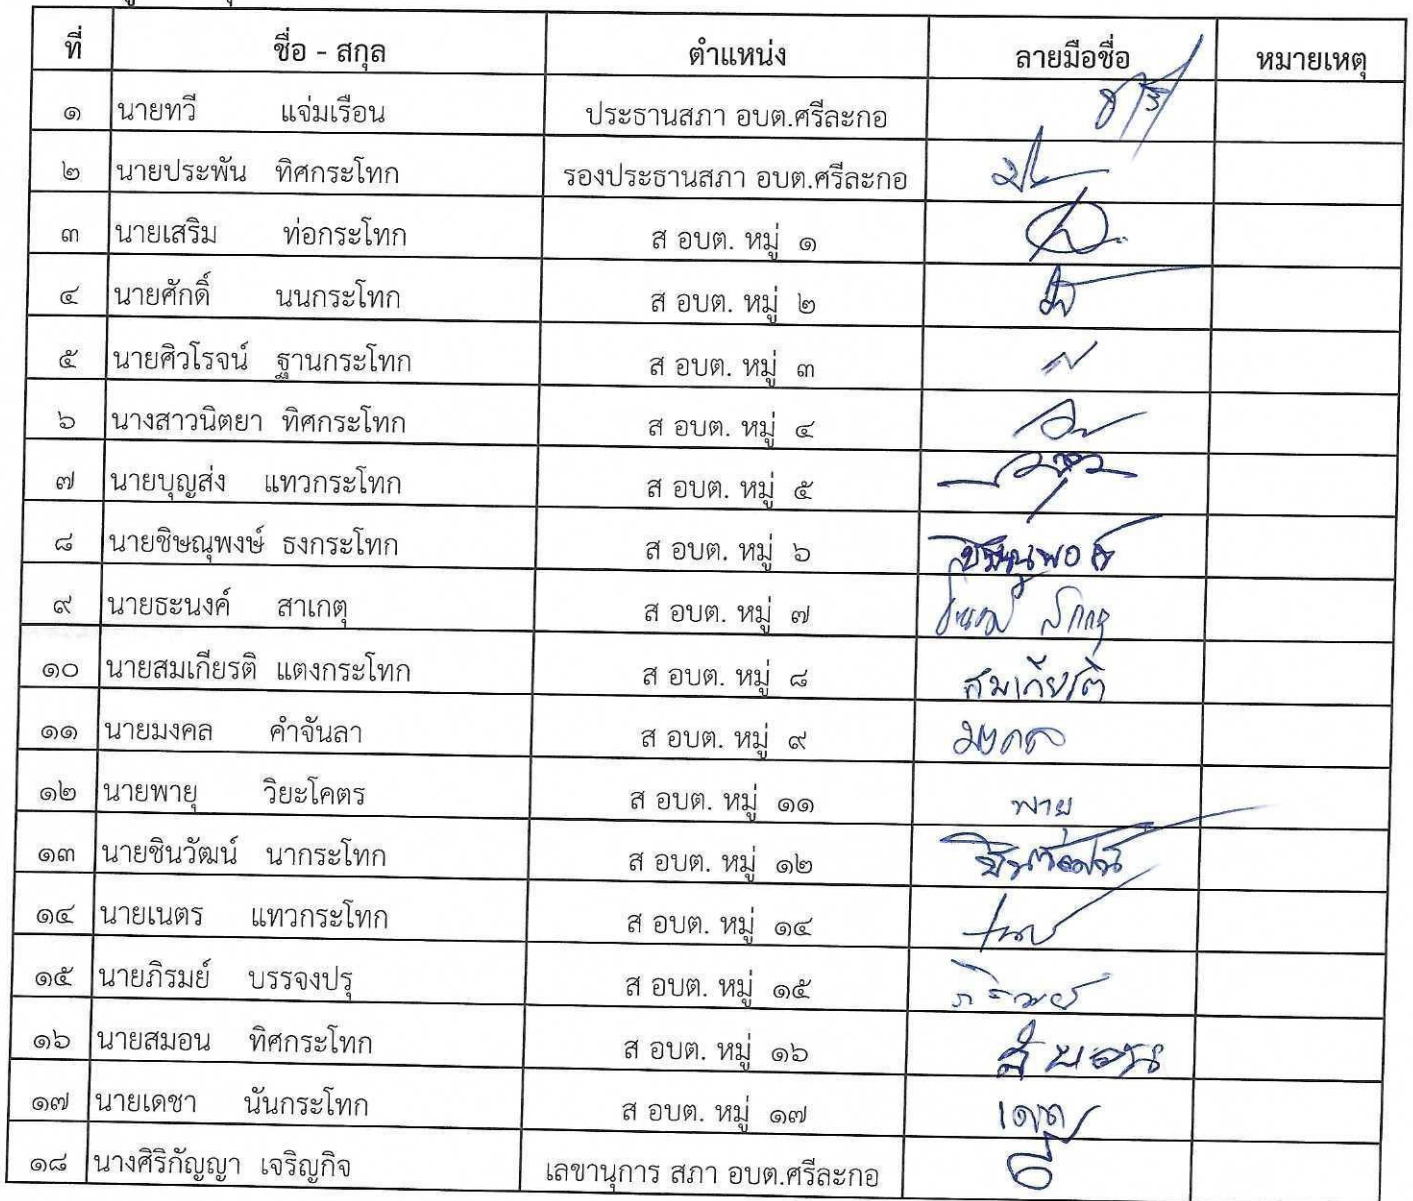 ที่ ชื่อ - สกุล ตำแหน่ง ลายมือชื่อ หมายเหตุ
๑ นายทวี แจ่มเรือน ประธานสภา อบต.ศรีละกอ
๒ นายประพัน ทิศกระโทก รองประธานสภา อบต.ศรีละกอ
๓ นายเสริม ท่อกระโทก ส อบต. หมู่ ๑
๔ นายศักดิ์ นนกระโทก ส อบต. หมู่ ๒
๕ นายศิวโรจน์ ฐานกระโทก ส อบต. หมู่ ๓
๖ นางสาวนิตยา ทิศกระโทก ส อบต. หมู่ ๔
๗ นายบุญส่ง แทวกระโทก ส อบต. หมู่ ๕
๘ นายชิษณุพงษ์ ธงกระโทก ส อบต. หมู่ ๖
๙ นายธะนงค์ สาเกตุ ส อบต. หมู่ ๗
๑๐ นายสมเกียรติ แตงกระโทก ส อบต. หมู่ ๘ สมเกียรติ
๑๑ นายมงคล คำจันลา ส อบต. หมู่ ๙ มงคล
๑๒ นายพายุ วิยะโคตร ส อบต. หมู่ ๑๑ พายุ
๑๓ นายชินวัฒน์ นากระโทก ส อบต. หมู่ ๑๒ ชินวัฒน์
๑๔ นายเนตร แทวกระโทก ส อบต. หมู่ ๑๔
๑๕ นายภิรมย์ บรรจงปรุ ส อบต. หมู่ ๑๕ ภิรมย์
๑๖ นายสมอน ทิศกระโทก ส อบต. หมู่ ๑๖
๑๗ นายเดชา นันกระโทก ส อบต. หมู่ ๑๗
๑๘ นางศิริกัญญา เจริญกิจ เลขานุการ สภา อบต.ศรีละกอ